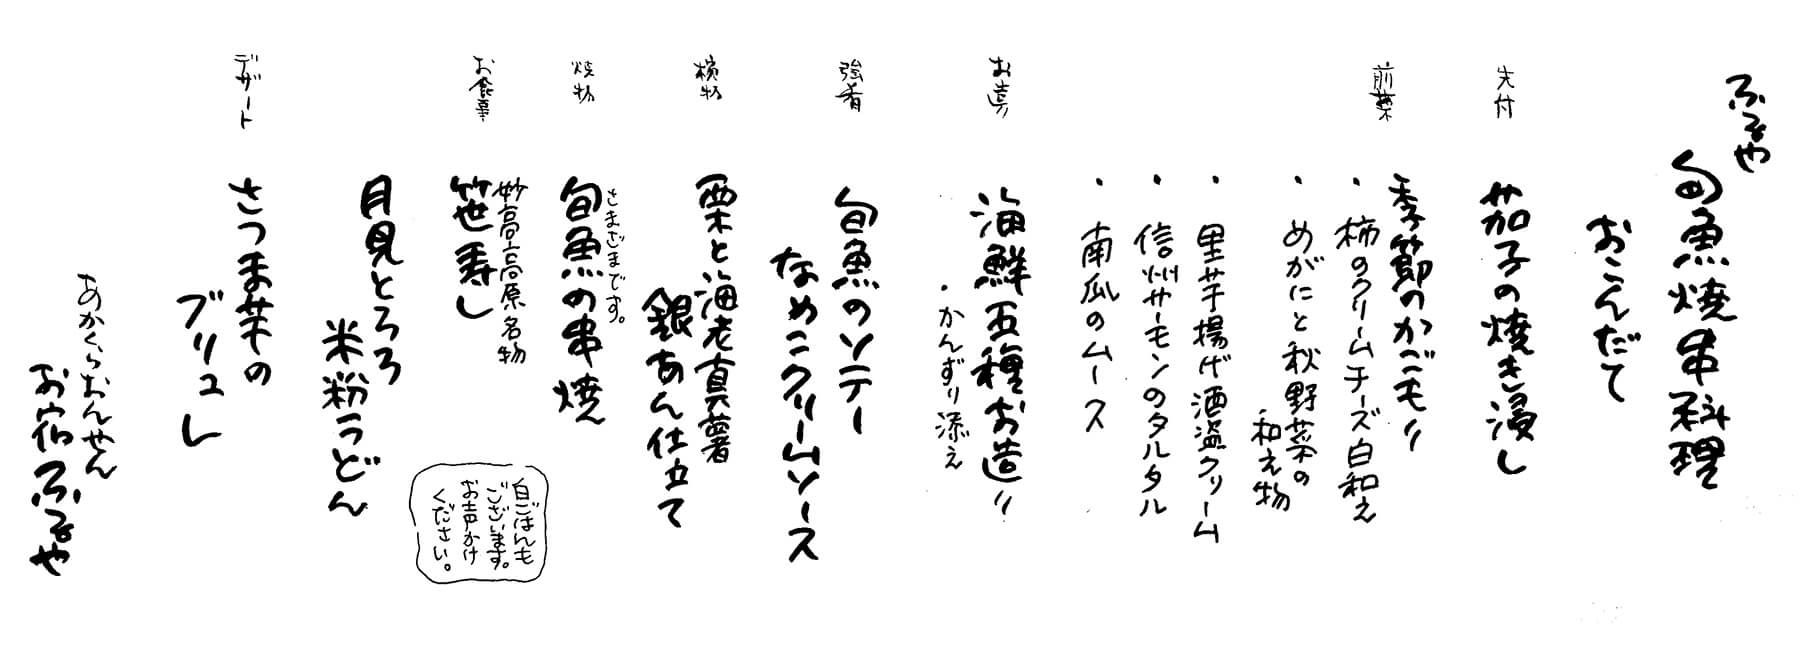 ふるや
旬魚焼串料理
おこんだて
先付
茄子の焼き浸し
前菜
季節のかごもり
・柿のクリームチーズ白和え
・めがにと秋野菜の
和え物
・里芋揚げ酒盗クリーム
・信州サーモンのタルタル
・南瓜のムース
お造り
海鮮五種お造り
・かんずり添え
強肴
旬魚のソテー
なめこクリームソース
椀物
栗と海老真薯
銀あん仕立て
焼物
さまざまです。
旬魚の串焼
お食事
妙高高原名物
笹寿し
月見とろろ
米粉うどん
白ごはんも
ございます。
お声かけ
ください。
デザート
さつま芋の
ブリュレ
あかくらおんせん
お宿ふるや